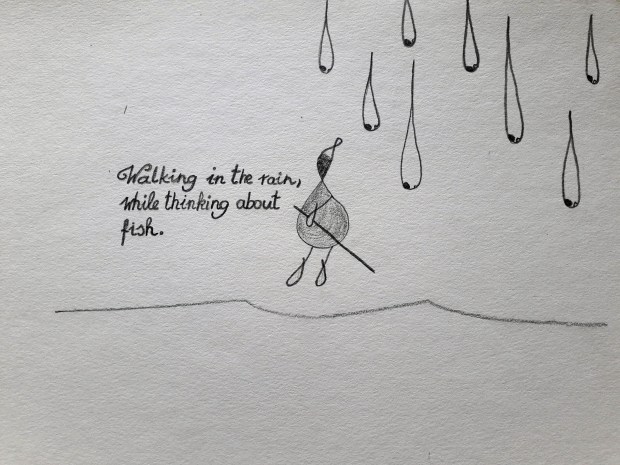 Walking in the rain,
while thinking about
fish.